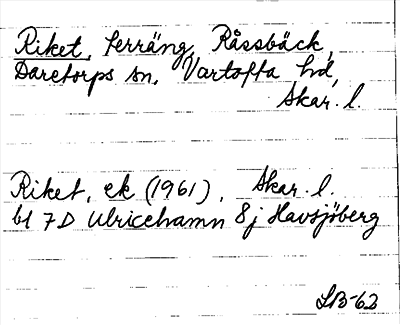 Riket, terräng, Råssbäck,
Daretorps sn, Vartofta hd,
Skar. l.
Riket, ek (1961), Skar. l.
bl 7D Ulricehamn 8j Havsjöberg
LB-63